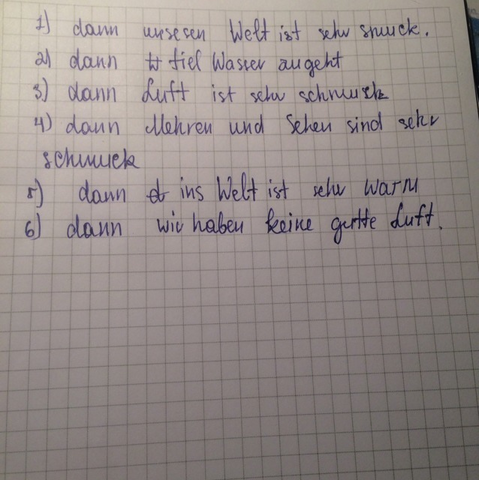 1) dann unseren Welt ist sehr smuck.
2) dann fiel Wasser augeht
3) dann Luft ist sehr schmuck
4) dann Mehren und Sehen sind sehr
schmuck
5) dann ins Welt ist sehr warm
6) dann wir haben keine gutte Luft.